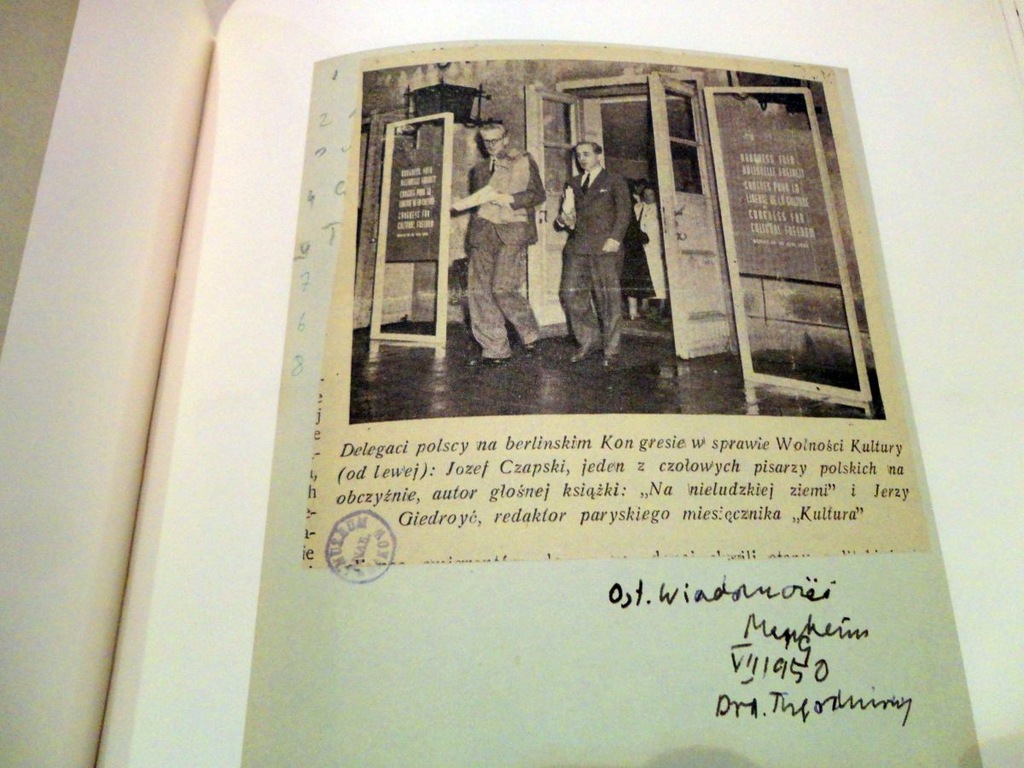 KONGRESS FUER
KULTURELLE FREIHEIT
CONGRES POUR LA
LIBERTE DE LA CULTURE
CONGRESS FOR
CULTURAL FREEDOM
KONGRESS FUER
KULTURELLE FREIHEIT
CONGRES POUR LA
LIBERTE DE LA CULTURE
CONGRESS FOR
CULTURAL FREEDOM
Delegaci polscy na berlinskim Kon gresie w sprawie Wolności Kultury
(od lewej): Jozef Czapski, jeden z czołowych pisarzy polskich na
obczyźnie, autor głośnej książki: „Na nieludzkiej ziemi” i Jerzy
Giedroyć, redaktor paryskiego miesięcznika „Kultura”
MUZEUM
Ost. Wiadomości
VII 1950